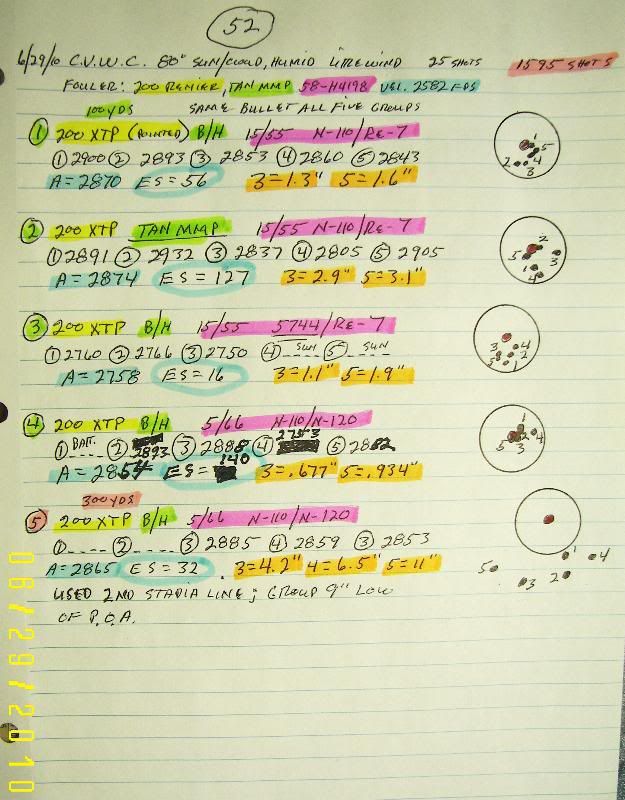 52
6/29/10 C.V.W.C. 80° SUN/CLOUD, HUMID LITEWIND 25 SHOTS 1595 SHOTS
FOULER: 200 REMIER, TAN MMP 58-H4198 VEL. 2582 FPS
100 YDS SAME BULLET ALL FIVE GROUPS
① 200 XTP (POINTED) B/H 15/55 N-110/RE-7
① 2900 ② 2893 ③ 2853 ④ 2860 ⑤ 2843
A=2870 ES=56 3=1.3" 5=1.6"
1 5 2 4 3
② 200 XTP TAN MMP 15/55 N-110/RE-7
① 2891 ② 2932 ③ 2837 ④ 2805 ⑤ 2905
A=2874 ES=127 3=2.9" 5=3.1"
2 5 3 1 4
③ 200 XTP B/H 15/55 5744/RE-7
① 2760 ② 2766 ③ 2750 ④ ---- SUN ⑤ ---- SUN
A=2758 ES=16 3=1.1" 5=1.9"
3 4 2 5 1
④ 200 XTP B/H 5/66 N-110/N-120
① BATT. ---- ② 2893 ③ 2888 ④ 2753 ⑤ 2882
A=2854 ES=140 3=.677" 5=.934"
1 2 4 5 3
300 YDS
⑤ 200 XTP B/H 5/66 N-110/N-120
① ---- ② ---- ③ 2885 ④ 2859 ③ 2853
A=2865 ES=32 . 3=4.2" 4=6.5" 5=11"
1 4 5 3 2
USED 2ND STADIA LINE; GROUP 9" LOW
OF P.O.A.
06/29/2010